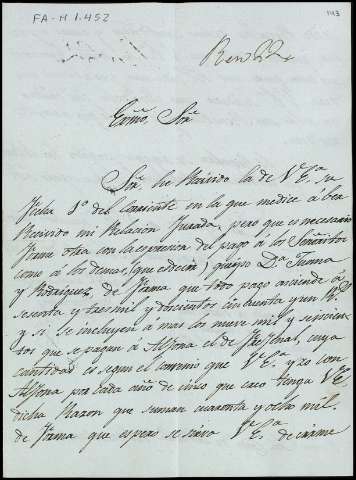 FA-H 1.452
143
Exmo. Snr.
Snr. he Recivido la de V.E.ª su
fecha 1º del Corriente en la que me dice á ber
Recivido mi Relacion Jurada, pero que es necesario
forme otra con la espresion del pago á los Señoritos
como á los demas, que Dª
y Rodriguez, de forma que todo pago asciende á
sesenta y tres mil y doscientos cincuenta y un R.s
y si se incluyen á mas los nueve mil y seiscien
tos que se pagan á Alfona el de cuya
cantidad es segun el convenio que V.E.ª y yo con
Alfona por cada año de cinco que creo tenga V.E.ª
dicha Razon que suman cuarenta y ocho mil.
de forma que espero se sirva V.E.ª decirme